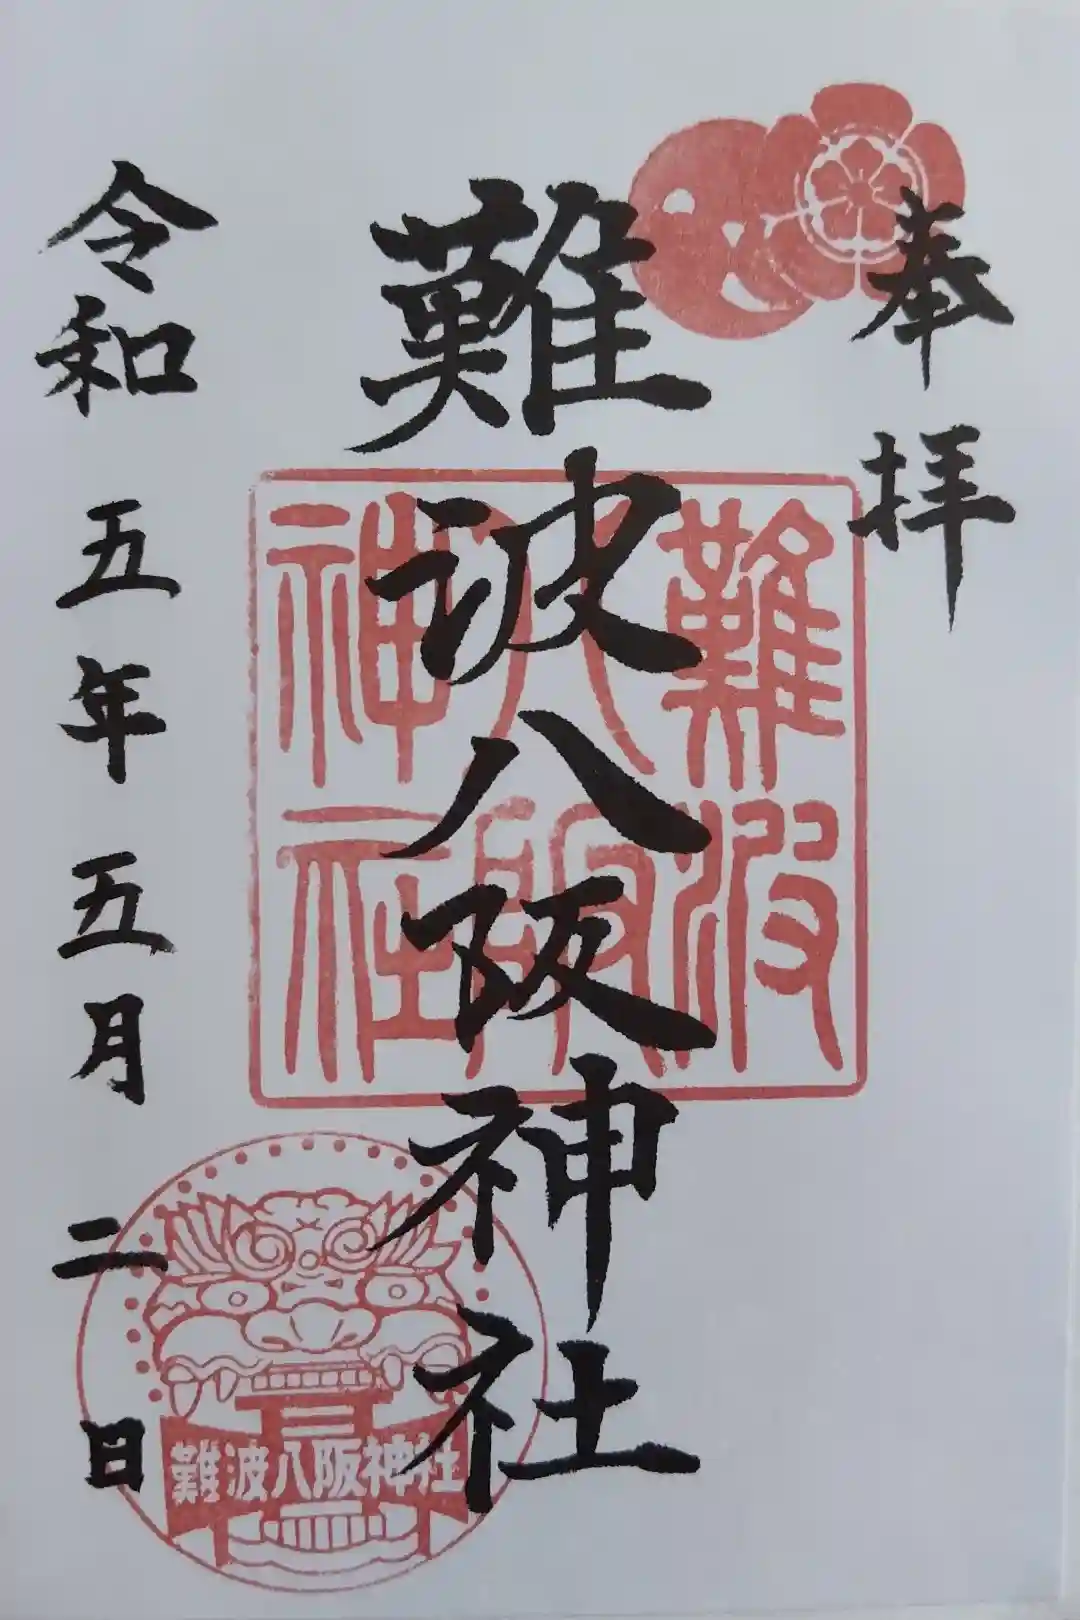 奉拝
難波八阪神社
令和五年五月二日
難波
八阪
神社
難波八阪神社